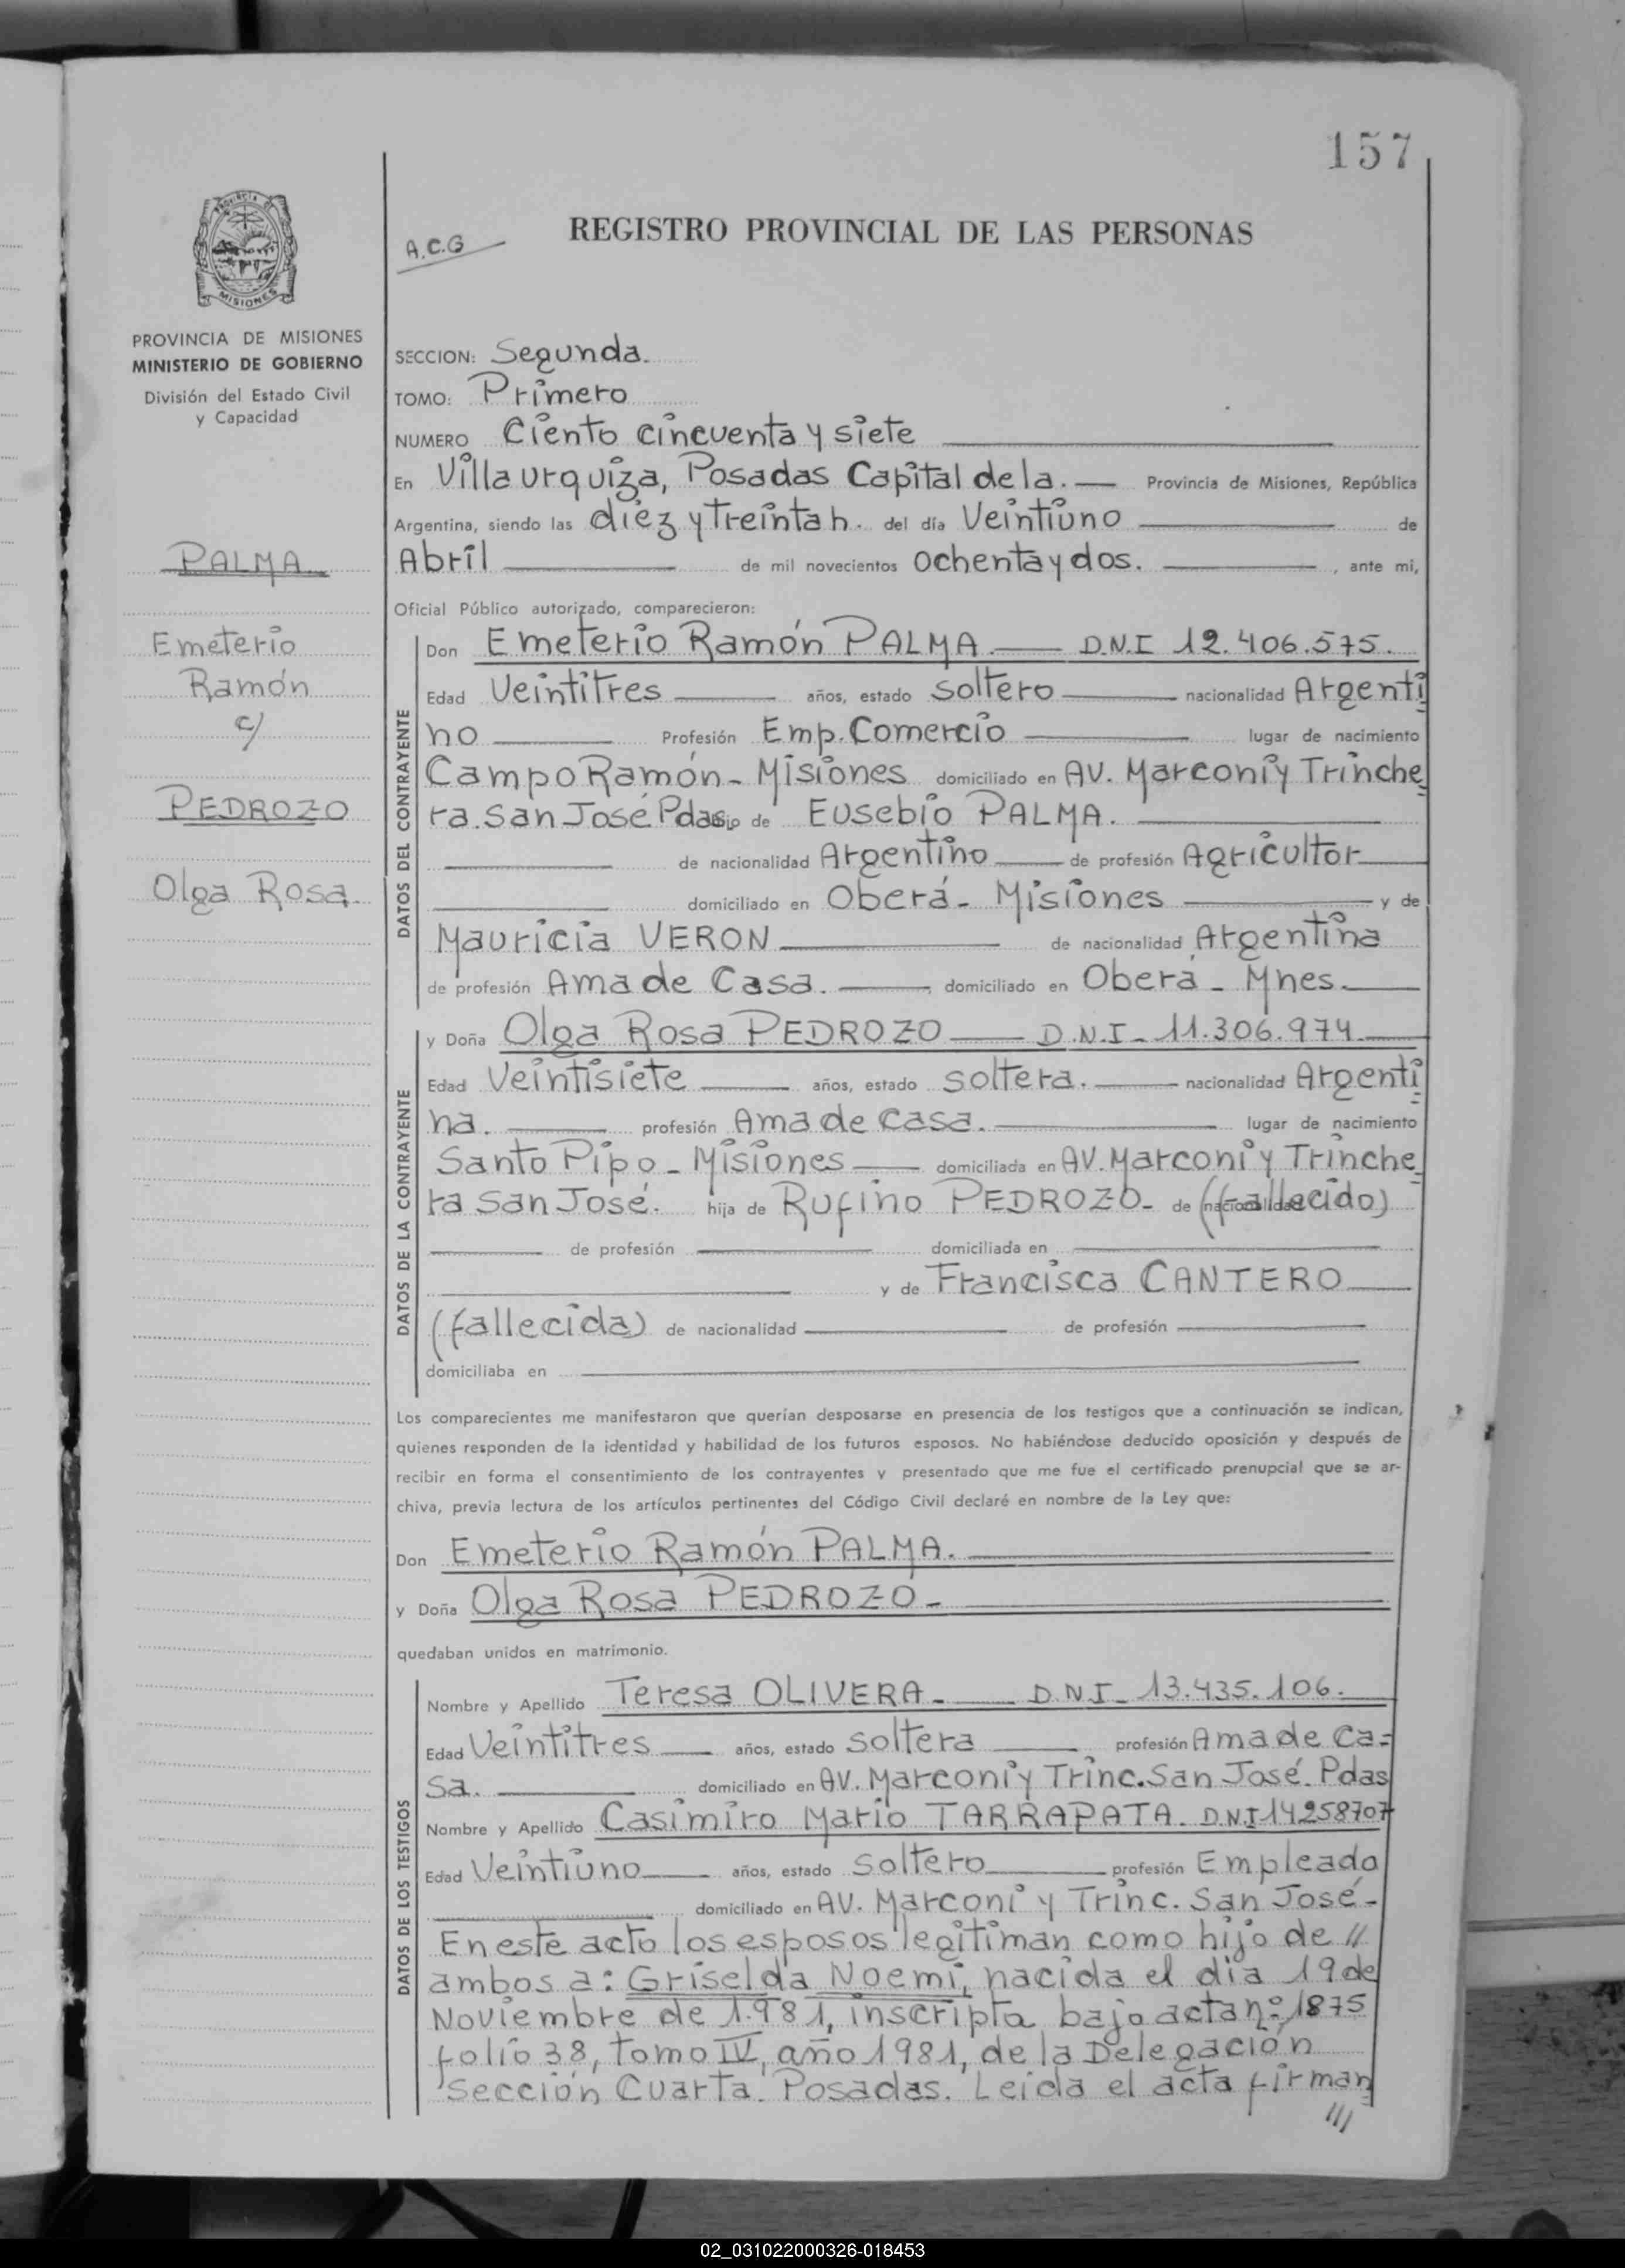 157
REGISTRO PROVINCIAL DE LAS PERSONAS
A.C.G
PROVINCIA DE MISIONES
MINISTERIO DE GOBIERNO
División del Estado Civil
y Capacidad
PALMA
Emeterio
Ramón
c/
PEDROZO
Olga Rosa.
SECCION: Segunda.
TOMO: Primero
NUMERO Ciento cincuenta y siete
En Villa urquiza, Posadas Capital de la. — Provincia de Misiones, República
Argentina, siendo las diez y treinta h. del día Veintiuno de
Abril de mil novecientos ochenta y dos. , ante mi,
Oficial Público autorizado, comparecieron:
DATOS DEL CONTRAYENTE
Don Emeterio Ramón PALMA. — D.N.I 12.406.575.
Edad Veintitres años, estado soltero nacionalidad Argenti
no Profesión Emp. Comercio lugar de nacimiento
Campo Ramón - Misiones domiciliado en AV. Marconi y Trinche
ra. San José Pdas. hijo de Eusebio PALMA.
de nacionalidad Argentino de profesión Agricultor
domiciliado en Oberá - Misiones y de
Mauricia VERON de nacionalidad Argentina
de profesión Ama de Casa. domiciliado en Oberá - Mnes.
DATOS DE LA CONTRAYENTE
y Doña Olga Rosa PEDROZO — D.N.I - 11.306.974.
Edad Veintisiete años, estado soltera. nacionalidad Argenti
na. profesión Ama de Casa. lugar de nacimiento
Santo Pipo - Misiones domiciliada en AV. Marconi y Trinche
ra San José. hija de Rufino PEDROZO - de nacionalidad (fallecido)
de profesión domiciliada en
y de Francisca CANTERO
(fallecida) de nacionalidad de profesión
domiciliaba en
Los comparecientes me manifestaron que querían desposarse en presencia de los testigos que a continuación se indican,
quienes responden de la identidad y habilidad de los futuros esposos. No habiéndose deducido oposición y después de
recibir en forma el consentimiento de los contrayentes y presentado que me fue el certificado prenupcial que se ar-
chiva, previa lectura de los artículos pertinentes del Código Civil declaré en nombre de la Ley que:
Don Emeterio Ramón PALMA.
y Doña Olga Rosa PEDROZO -
quedaban unidos en matrimonio.
DATOS DE LOS TESTIGOS
Nombre y Apellido Teresa OLIVERA - D.N.I - 13.435.106.
Edad Veintitres años, estado soltera profesión Ama de Ca=
sa. domiciliado en AV. Marconi y Trinc. San José. Pdas
Nombre y Apellido Casimiro Mario TARRAPATA. D.N.I 14258707
Edad Veintiuno años, estado soltero profesión Empleado
domiciliado en AV. Marconi y Trinc. San José -
En este acto los esposos legitiman como hijo de //
ambos a: Griselda Noemi, nacida el día 19 de
Noviembre de 1.981, inscripta bajo acta nº 1875
folio 38, tomo IV, año 1981, de la Delegación
Sección Cuarta. Posadas. Leida el acta firman
///
02_031022000326-018453